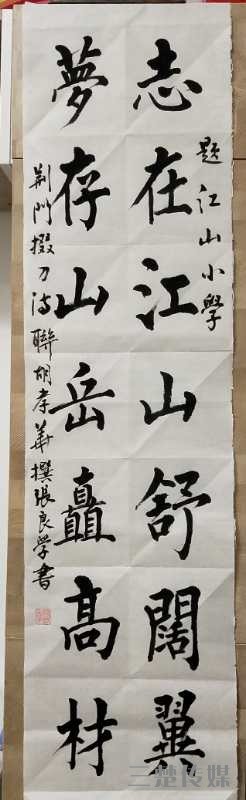 题江山小學
志在江山舒闊翼
夢存山岳矗高材
荆門掇刀诗聯胡孝華撰張良学書
三楚传媒